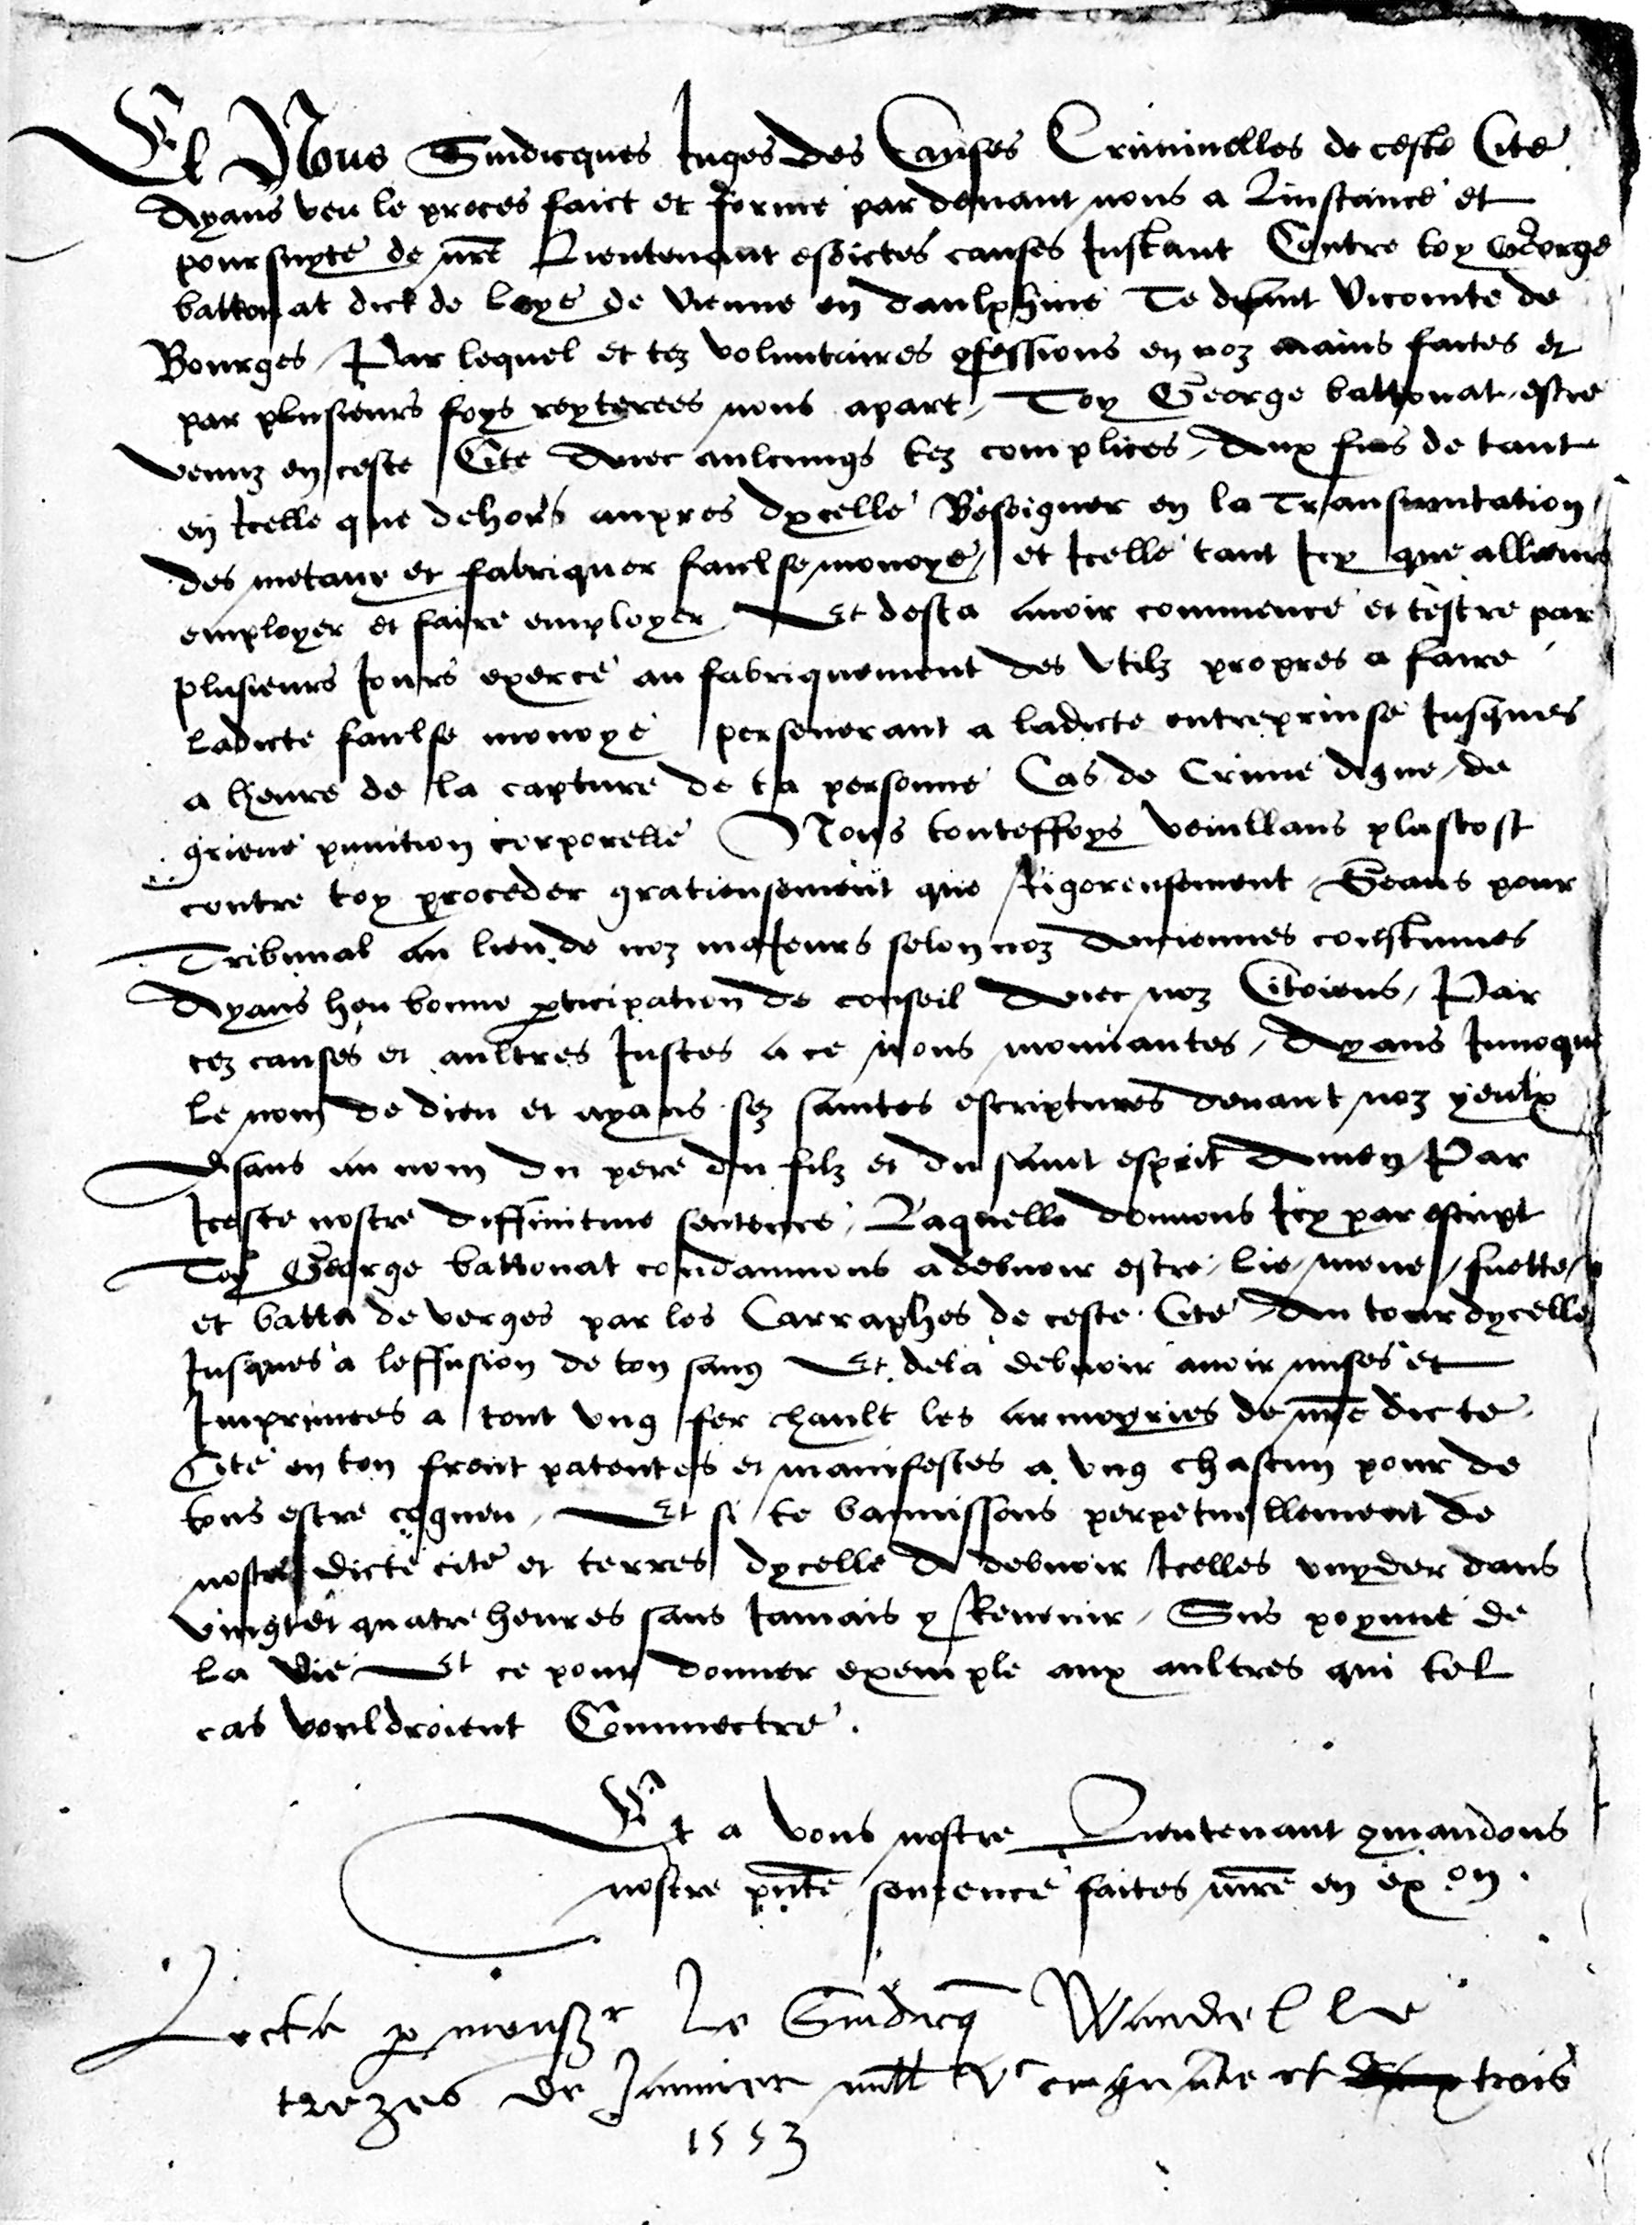 Et Nous Sindicques Juges des Causes Criminelles de ceste Cite
Ayans veu le proces faict et forme par devant nous a Linstance et
poursuyte de nre Lieutenant esdictes causes Instant Contre toy George
battonat dict de Loye de Vienne en daulphine Te disant Vicomte de
Bourges, Par lequel et tez voluntaires ꝯfessions en noz mains faites et
par plusieurs foys reyterees nous apart, Toy George battonat estre
venuz en ceste Cite Avec aulcungs tez complices, Aux fins de tant
en Icelle que dehors aupres dycelle Besoigner en la Transmutation
des metaux et fabriquer faulse monoye, et Icelle tant Icy que allieurs
employer et faire employer Et desia avoir commence et testre par
plusieurs Jours exerce au fabriquement des Utilz propres a faire
Ladicte faulse monoye perseverant a ladicte entreprinse Jusques
a lheure de la capture de ta personne Cas de Crime digne de
grieve punition corporelle Nous touteffoys veuillans plustost
contre toy proceder gratieusement que Rigoreusement, Seans pour
Tribunal au lieu de noz maieurs selon noz Anciennes coustumes
Ayans heu bonne ꝑticipation de conseil Avec noz Citoiens, Par
cez causes et aultres Justes a ce nous mouvantes, Ayans Invoque
le nom de dieu et ayans sez saintes escriptures devant noz yeulx
disans au nom du pere du filz et du saint esprit Amen, Par
Iceste nostre diffinitive sentence, Laquelle donnons Icy par escript
Toy George battonat condamnons a debvoir estre, lie, mene, fuette,
et battu de verges par les Carraphes de ceste Cite Au tour dycelle
Jusques a leffusion de ton sang Et dela debvoir avoir mises et
Imprimees a tout ung fer chault les armoyries de nre dicte
Cite en ton front patentes et manifestes a ung chascun pour de
tous estre cogneu, Et si te bannissons perpetuellement de
nostre dicte cite et terres dycelle A debvoir Icelles vuyder dans
vingt et quatre heures sans Jamais y Revenir, Sus poynne de
La vie Et ce pour donner exemple aux aultres qui tel
cas vouldroient Commectre.
Et a vous nostre Lieutenant ꝯmandons
nostre pnte sentence faites mre en exon.
Lecta ꝑ monsr Le Sindicq Wandel le
trezes de Janvier mill Vc cinquante et trois
1553